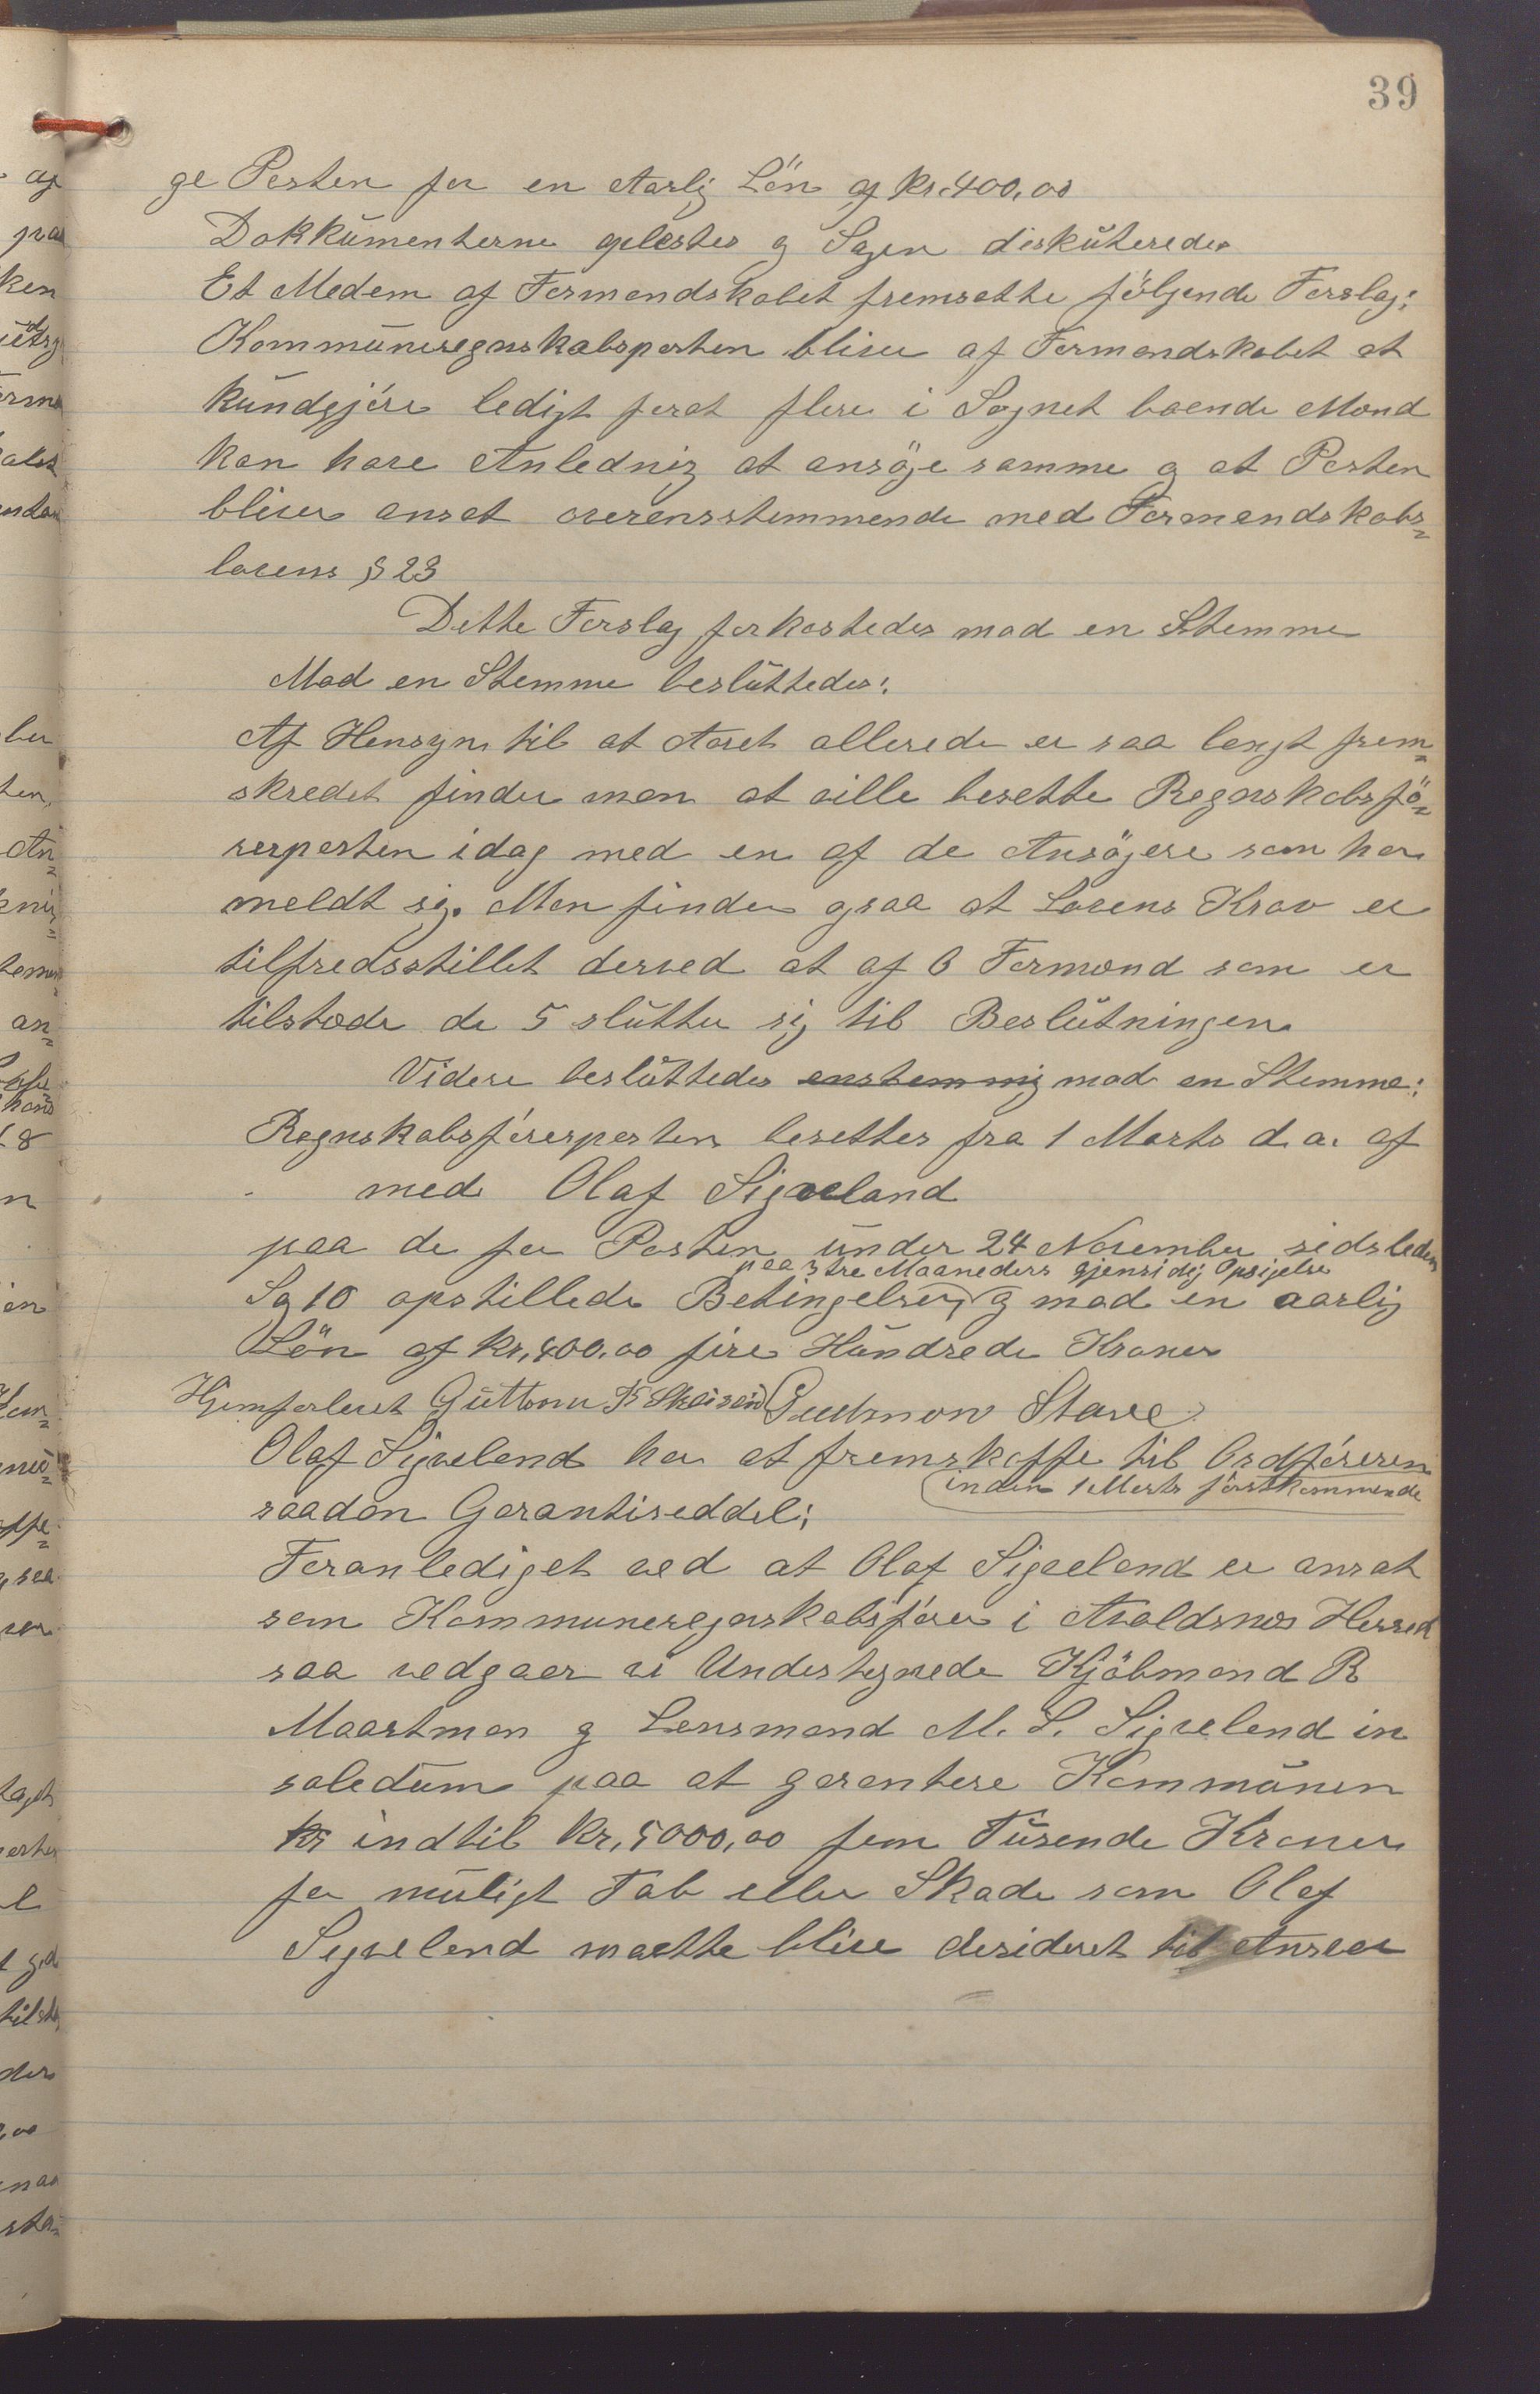 39
ge Posten for en Aarlig Løn af kr. 400,00
Dokkumenterne oplæstes og Sagen diskuteredes
Et Medem af Formandskabet fremsatte følgende Forslag:
Kommuneregnskabsposten bliver af Formandskabet at
kundgjøre ledigt forat flere i Sognet boende Mænd
kan have Anledning at ansøge samme og at Posten
bliver ansat overensstemmende med Formandskabs=
lovens § 23
Dette Forslag forkastedes mod en Stemme
Mod en Stemme besluttedes:
Af Hensyn til at Aaret allerede er saa langt frem=
skredet finder man at ville besætte Regnskabsfö=
rerposten idag med en af de Ansøgere som har
meldt sig. Man finder ogsaa at Lovens Krav er
tilfredsstillet derved at af 6 Formænd som er
tilstæde de 5 slutter sig til Beslutningen
Videre besluttedes enstemmig mod en Stemme:
Regnskabsførerposten besættes fra 1 Marts d.a. af
med Olaf Sigveland
paa de for Posten under 24 November sidstleden
paa 3 tre Maaneders gjensidig Opsigelse
Sag 10 opstillede Betingelser, og mod en aarlig
Løn af kr. 400,00 fire Hundrede Kroner
Hjemforlovet Guttorm
Gudmon Stave
Olaf Sigveland har at fremskaffe til Ordføreren
inden 1 Marts førstkommende
saadan Garantiseddel:
Foranlediget ved at Olaf Sigveland er ansat
som Kommuneregnskabsfører i Avaldsnes Herred
saa vedgaar vi Undertegnede Kjøbmand R
Maartman og Lensmand M. S. Sigveland in
soledum paa at garantere Kommunen
kr indtil kr. 5000,00 fem Tusende Kroner
for muligt Tab eller Skade som Olaf
Sigveland maatte blive desideret til Ansvar